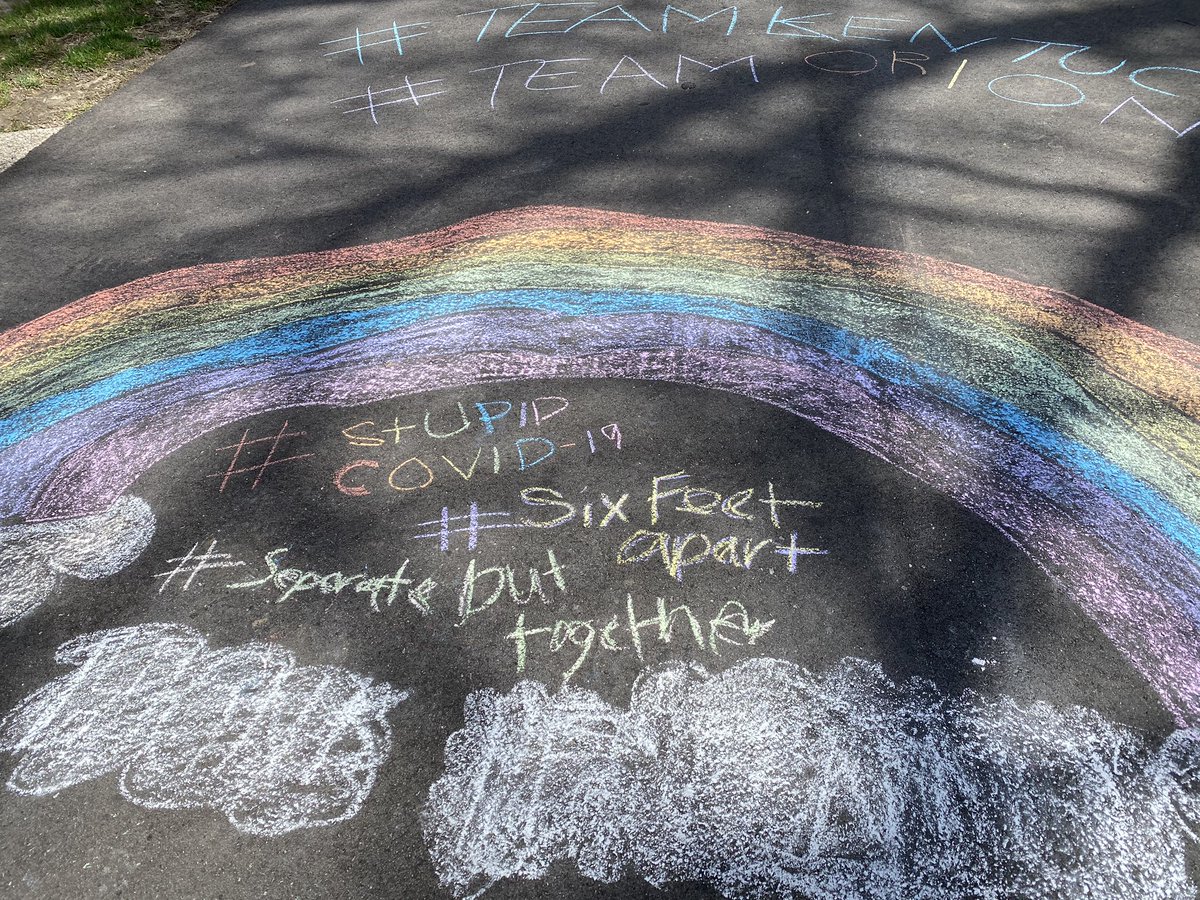 #TEAMKENTUC
#TEAM ORION
# STUPID
COVID-19
# Six Feet
apart
# Separate but
together